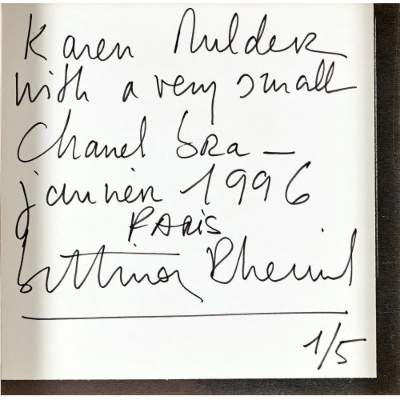 Karen Mulder
with a very small
Chanel bra –
janvier 1996
PARIS
Bettina Rheims
1/5